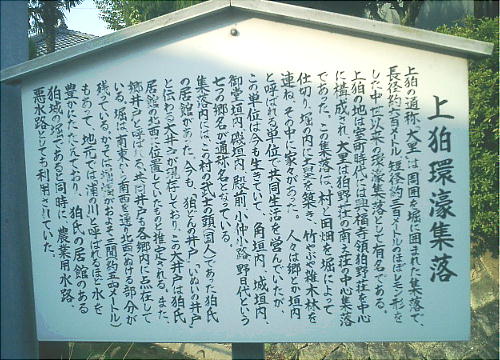 上狛環濠集落
上狛の通称、大里は周囲を堀に囲まれた集落で、
長径約六百メートル短径約三百メートルのほぼレモン形を
した中世以来の環濠集落として有名である。
上狛の地は室町時代には興福寺領狛野荘を中心
に構成され、大里は狛野荘の南荘の中心集落
であった。この集落は、村と田畑を堀によって
仕切り、堀の内に土塁を築き、竹やぶや雑木林を
連ね、その中に家々があった。人々は郷とか垣内
と呼ばれる単位で共同生活を営んでいたが
この単位は今も生きていて、角垣内、城垣内、
御堂垣内、磯垣内、殿前、小仲小路、野日代という
七つの郷名が通称名となっている。
集落内にはこの村の武士の頭(国人)であった狛氏
の居館があった。今も「狛どんの井戸」「いぬいの井戸」
と伝わる大井戸が現存しており、この大井戸は狛氏
居館の北西に位置していたものと推定される。また、
郷井戸と呼ばれる共同井戸も各郷内に点在して
いる。堀は南東から南西を経て北西にぬける部分が
残っている。かつては堀幅がおよそ三間(約五・四メートル)
もあって、地元では「浦の川」と呼ばれるほど水を
豊かにたたえており、狛氏の居館のある
狛城の堀であると同時に、農業用水路、
悪水路としても利用されていた。